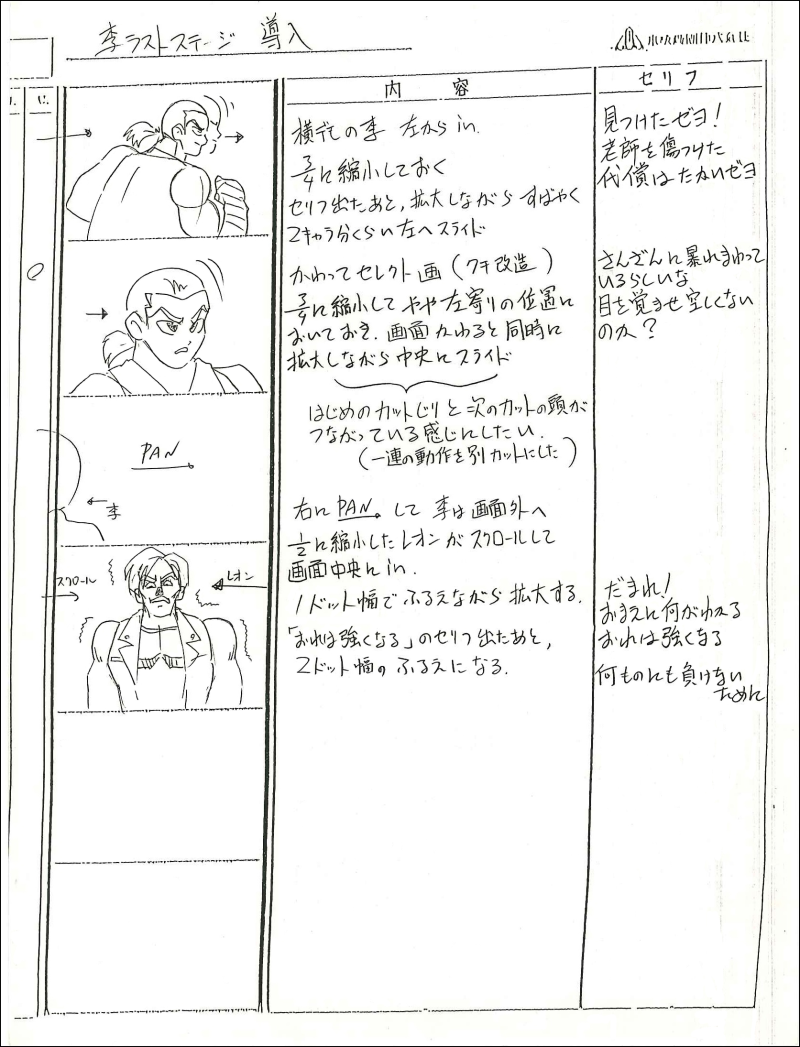 李ラストステージ 導入
内容
セリフ
横デモの李 左から in.
3/4に縮小しておく
セリフ出たあと、拡大しながら すばやく
2キャラ分くらい左へスライド
見つけたゼヨ!
老師を傷つけた
代償はたかいゼヨ
かわってセレクト画 (クチ改造)
3/4に縮小して やや左寄りの位置に
おいておき. 画面かわると同時に
拡大しながら中央にスライド
さんざんに暴れまわって
いるらしいな
目を覚ませ 空しくない
のか?
はじめのカットじりと次のカットの頭が
つながっている感じにしたい.
(一連の動作を別カットにした)
PAN
李
右にPAN。して 李は画面外へ
1/2に縮小したレオンがスクロールして
画面中央に in.
1ドット幅でふるえながら拡大する.
「おれは強くなる」のセリフ出たあと,
2ドット幅のふるえになる.
スクロール
レオン
だまれ!
おまえに何がわかる
おれは強くなる
何ものにも負けない
ために